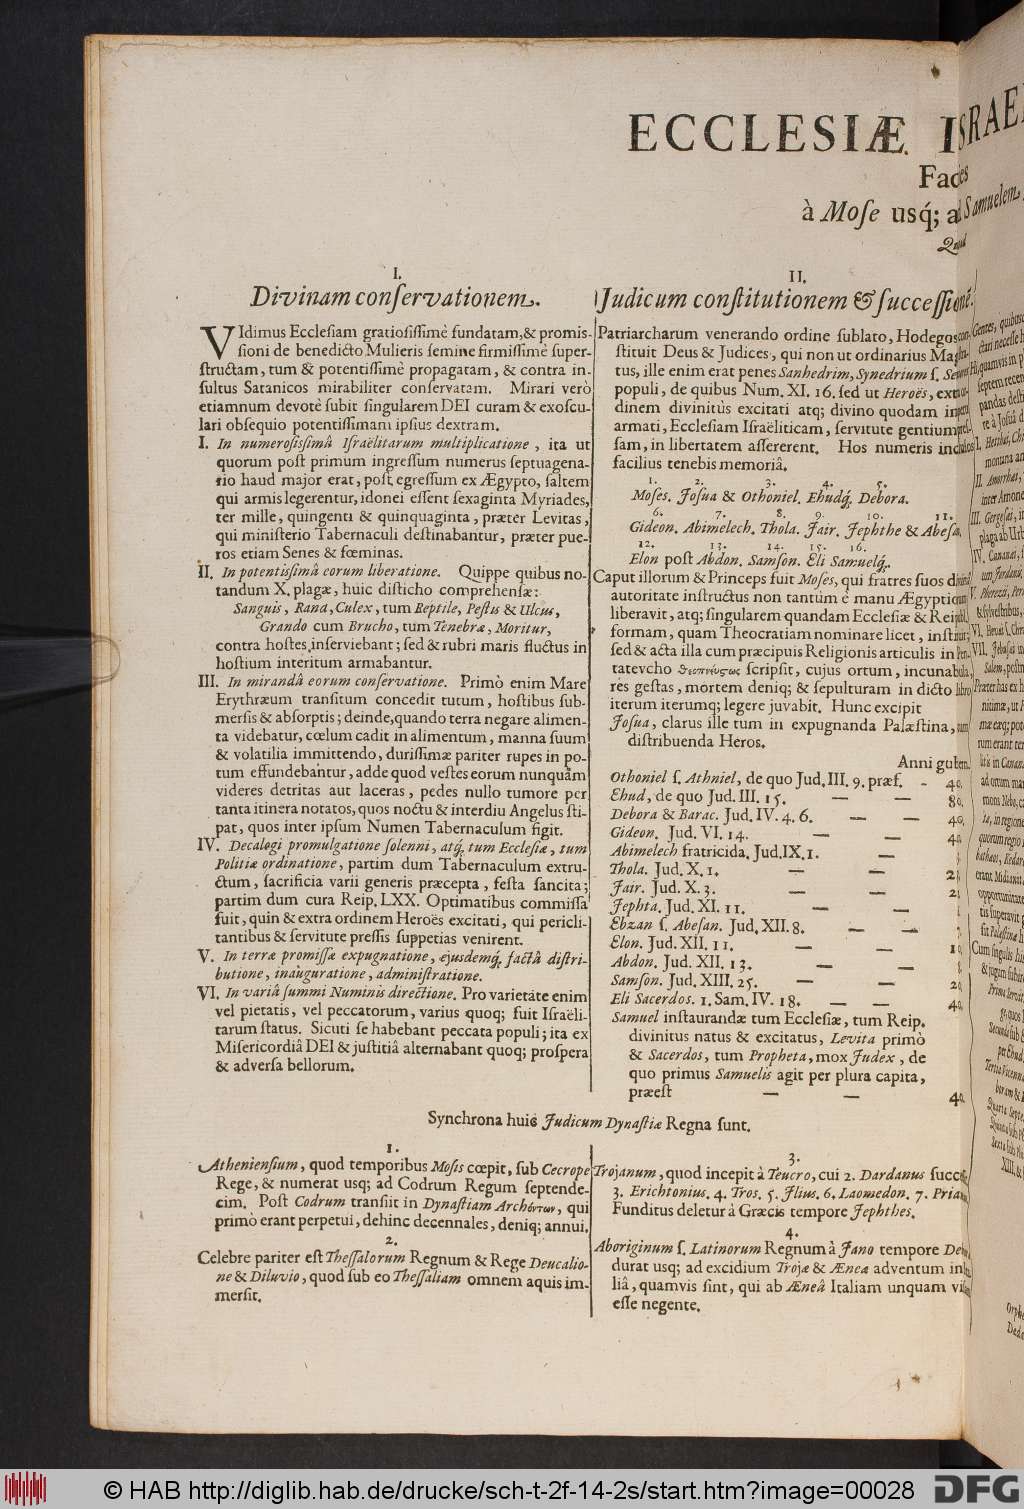 ECCLESIÆ ISRAE
Facies
à Mose usq́; ad Samuelem,
Quoad
I.
Divinam conſervationem.
VIdimus Eccleſiam gratioſiſſimè fundatam,& promis-
ſioni de benedicto Mulieris ſemine firmiſſimè ſuper-
ſtructam, tum & potentiſſimè propagatam, & contra in-
ſultus Satanicos mirabiliter conſervatam. Mirari verò
etiamnum devotè ſubit ſingularem DEI curam & exoſcu-
lari obſequio potentiſſimam ipſius dextram.
I. In numeroſiſſimâ Iſraëlitarum multiplicatione, ita ut
quorum poſt primum ingreſſum numerus ſeptuagena-
rio haud major erat, poſt egreſſum ex Ægypto, ſaltem
qui armis legerentur, idonei eſſent ſexaginta Myriades,
ter mille, quingenti & quinquaginta, præter Levitas,
qui miniſterio Tabernaculi deſtinabantur, præter pue-
ros etiam Senes & fœminas.
II. In potentiſſimâ eorum liberatione. Quippe quibus no-
tandum X. plagæ, huic diſticho comprehenſæ:
Sanguis, Rana, Culex, tum Reptile, Peſtis & Ulcus,
Grando cum Brucho, tum Tenebræ, Moritur,
contra hoſtes inſerviebant; ſed & rubri maris fluctus in
hoſtium interitum armabantur.
III. In mirandâ eorum conſervatione. Primò enim Mare
Erythræum tranſitum concedit tutum, hoſtibus ſub-
merſis & abſorptis; deinde,quando terra negare alimen-
ta videbatur, cœlum cadit in alimentum, manna ſuum
& volatilia immittendo, duriſſimæ pariter rupes in po-
tum effundebantur, adde quod veſtes eorum nunquam
videres detritas aut laceras, pedes nullo tumore per
tanta itinera notatos, quos noctu & interdiu Angelus ſti-
pat, quos inter ipſum Numen Tabernaculum figit.
IV. Decalogi promulgatione ſolenni, atq́, tum Eccleſiæ, tum
Politiæ ordinatione, partim dum Tabernaculum extru-
ctum, ſacrificia varii generis præcepta, feſta ſancita;
partim dum cura Reip. LXX. Optimatibus commiſſa
fuit, quin & extra ordinem Heroës excitati, qui pericli-
tantibus & ſervitute preſſis ſuppetias venirent.
V. In terræ promiſſæ expugnatione, ejusdemq́, factâ diſtri-
butione, inauguratione, adminiſtratione.
VI. In variâ ſummi Numinis directione. Pro varietate enim
vel pietatis, vel peccatorum, varius quoq; fuit Iſraëli-
tarum ſtatus. Sicuti ſe habebant peccata populi; ita ex
Miſericordiâ DEI & juſtitiâ alternabant quoq; proſpera
& adverſa bellorum.
II.
Judicum conſtitutionem & ſucceſſionē.
Patriarcharum venerando ordine ſublato, Hodegos con-
ſtituit Deus & Judices, qui non ut ordinarius Magiſtra-
tus, ille enim erat penes Sanhedrim, Synedrium ſ. Seniores
populi, de quibus Num. XI. 16. ſed ut Heroës, extra or-
dinem divinitùs excitati atq; divino quodam impetu
armati, Eccleſiam Iſraëliticam, ſervitute gentium preſ-
ſam, in libertatem aſſererent. Hos numeris incluſos
facilius tenebis memoriâ.
1. 2. 3. 4. 5.
Moſes. Joſua & Othoniel. Ehudq́. Debora.
6. 7. 8. 9. 10. 11.
Gideon. Abimelech. Thola. Jair. Jephthe & Abeſan.
12. 13. 14. 15. 16.
Elon poſt Abdon. Samſon. Eli Samuelq́.
Caput illorum & Princeps fuit Moſes, qui fratres ſuos divinâ
autoritate inſtructus non tantùm è manu Ægyptiorum
liberavit, atq; ſingularem quandam Eccleſiæ & Reipubl.
formam, quam Theocratiam nominare licet, inſtituit;
ſed & acta illa cum præcipuis Religionis articulis in Pen-
tatevcho θεοπνεύςτως ſcripſit, cujus ortum, incunabula,
res geſtas, mortem deniq; & ſepulturam in dicto libro
iterum iterumq; legere juvabit. Hunc excipit
Joſua, clarus ille tum in expugnanda Palæſtina, tum
diſtribuenda Heros.
Anni gubern.
Othoniel ſ. Athniel, de quo Jud. III. 9. præf. - 40.
Ehud, de quo Jud. III. 15. — — 80.
Debora & Barac. Jud. IV. 4. 6. — — 40.
Gideon. Jud. VI. 14. — — 40.
Abimelech fratricida. Jud. IX. 1. —
Thola. Jud. X. 1. — —
Jair. Jud. X. 3. — —
Jephta. Jud. XI. 11. — —
Ebzan ſ. Abeſan. Jud. XII. 8. — — 7.
Elon. Jud. XII. 11. — — 10.
Abdon. Jud. XII. 13. — — 8.
Samſon. Jud. XIII. 25. — — 20.
Eli Sacerdos. 1. Sam. IV. 18. — — 40.
Samuel inſtaurandæ tum Eccleſiæ, tum Reip.
divinitus natus & excitatus, Levita primò
& Sacerdos, tum Propheta, mox Judex, de
quo primus Samuelis agit per plura capita,
præeſt — — 40.
Synchrona huic Judicum Dynaſtiæ Regna ſunt.
1.
Athenienſium, quod temporibus Moſis cœpit, ſub Cecrope
Rege, & numerat usq; ad Codrum Regum ſeptende-
cim. Poſt Codrum tranſiit in Dynaſtiam Archόντων, qui
primò erant perpetui, dehinc decennales, deniq; annui.
2.
Celebre pariter eſt Theſſalorum Regnum & Rege Deucalio-
ne & Diluvio, quod ſub eo Theſſaliam omnem aquis im-
merſit.
3.
Trojanum, quod incepit à Teucro, cui 2. Dardanus ſucceſſit,
3. Erichtonius. 4. Tros. 5. Jlius. 6. Laomedon. 7. Priamus,
Funditus deletur à Græcis tempore Jephthes.
4.
Aboriginum ſ. Latinorum Regnum à Jano tempore
durat usq; ad excidium Trojæ & Æneæ adventum in Ita-
liâ, quamvis ſint, qui ab Æneâ Italiam unquam viſam
eſſe negente.
© HAB http://diglib.hab.de/drucke/sch-t-2f-14-2s/start.htm?image=00028
DFG